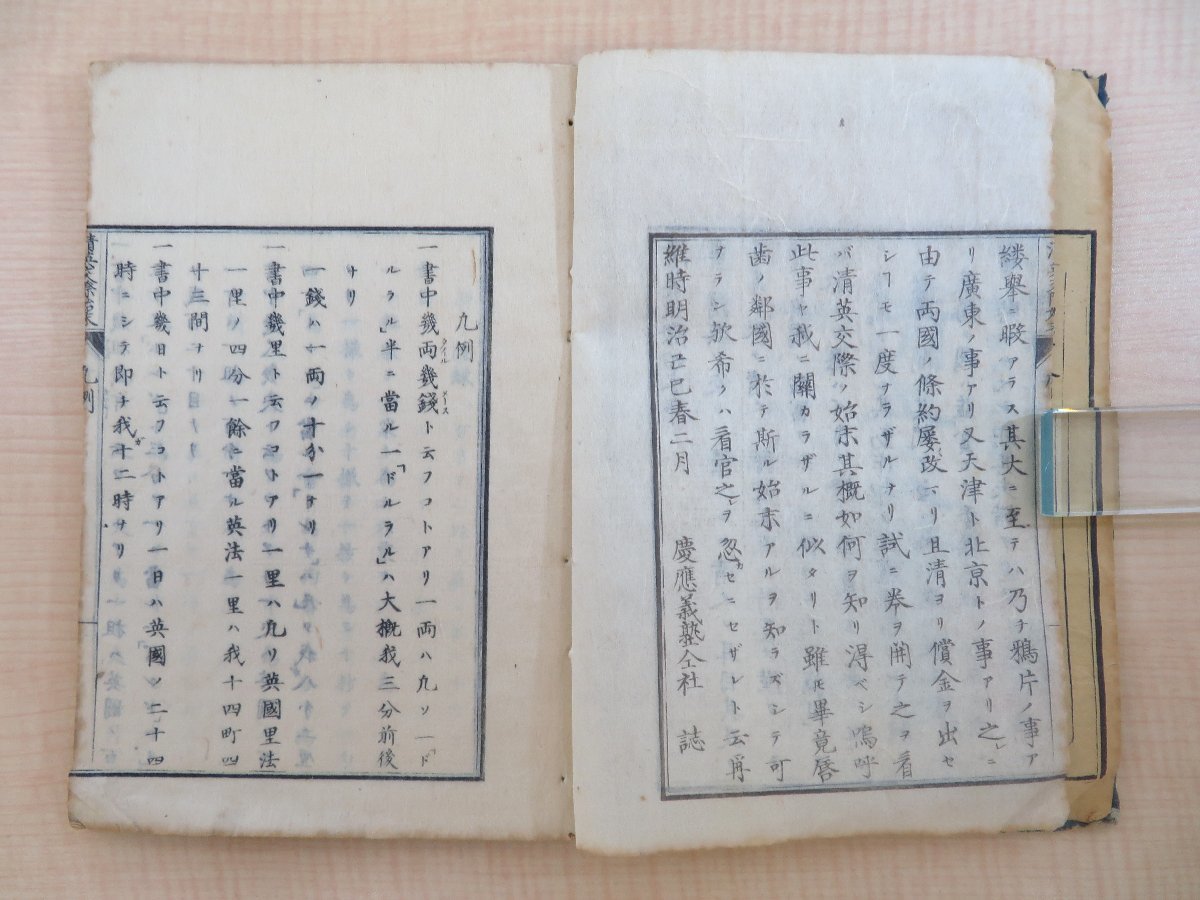 縷舉ニ暇アラス其大ニ至テハ乃チ鴉片ノ事ア
リ廣東ノ事アリ又天津ト北京トノ事アリ之レニ
由テ両國ノ條約屡改マリ且清ヨリ償金ヲ出セ
シヿモ一度ヲラザルナリ試ニ巻ヲ開テ之ヲ看
バ清英交際ノ始末其概如何ヲ知リ得ベシ嗚呼
此事ャ我ニ關カラザルニ似タリト雖ㇳモ畢竟唇
歯ノ鄰國ニ於テ斯ル始末アルヲ知ラズシテ可
ヲランㇵ欤希クハ看官之レヲ忽カセニセザレト云爾
維時明治己巳春二月　慶應義塾仝社　誌
凡例
一書中幾両タイル幾錢メースト云フコトアリ一両ハ凡ソ一「ド
ルラル」半ニ當ル一「ドルラル」ハ大概我三分前後
ナリ
一錢ハ一両ノ十分一ナリ
一書中幾里ト云フコトアリ一里ハ凡リ英國里法
一里ノ四分一餘ニ當ル英法一里ハ我十四町四
十三間ナリ
一書中幾日ト云フコトアリ一日ハ英國ノ二十四
時ニシテ即チ我ガ十二時ナリ
凡例